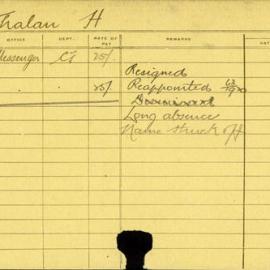 Thalan H
OFFICE DEPT. RATE OF PAY REMARKS
Messenger 25/-
Resigned
25/- Reappointed
Dismissed
Long absence
Name struck off